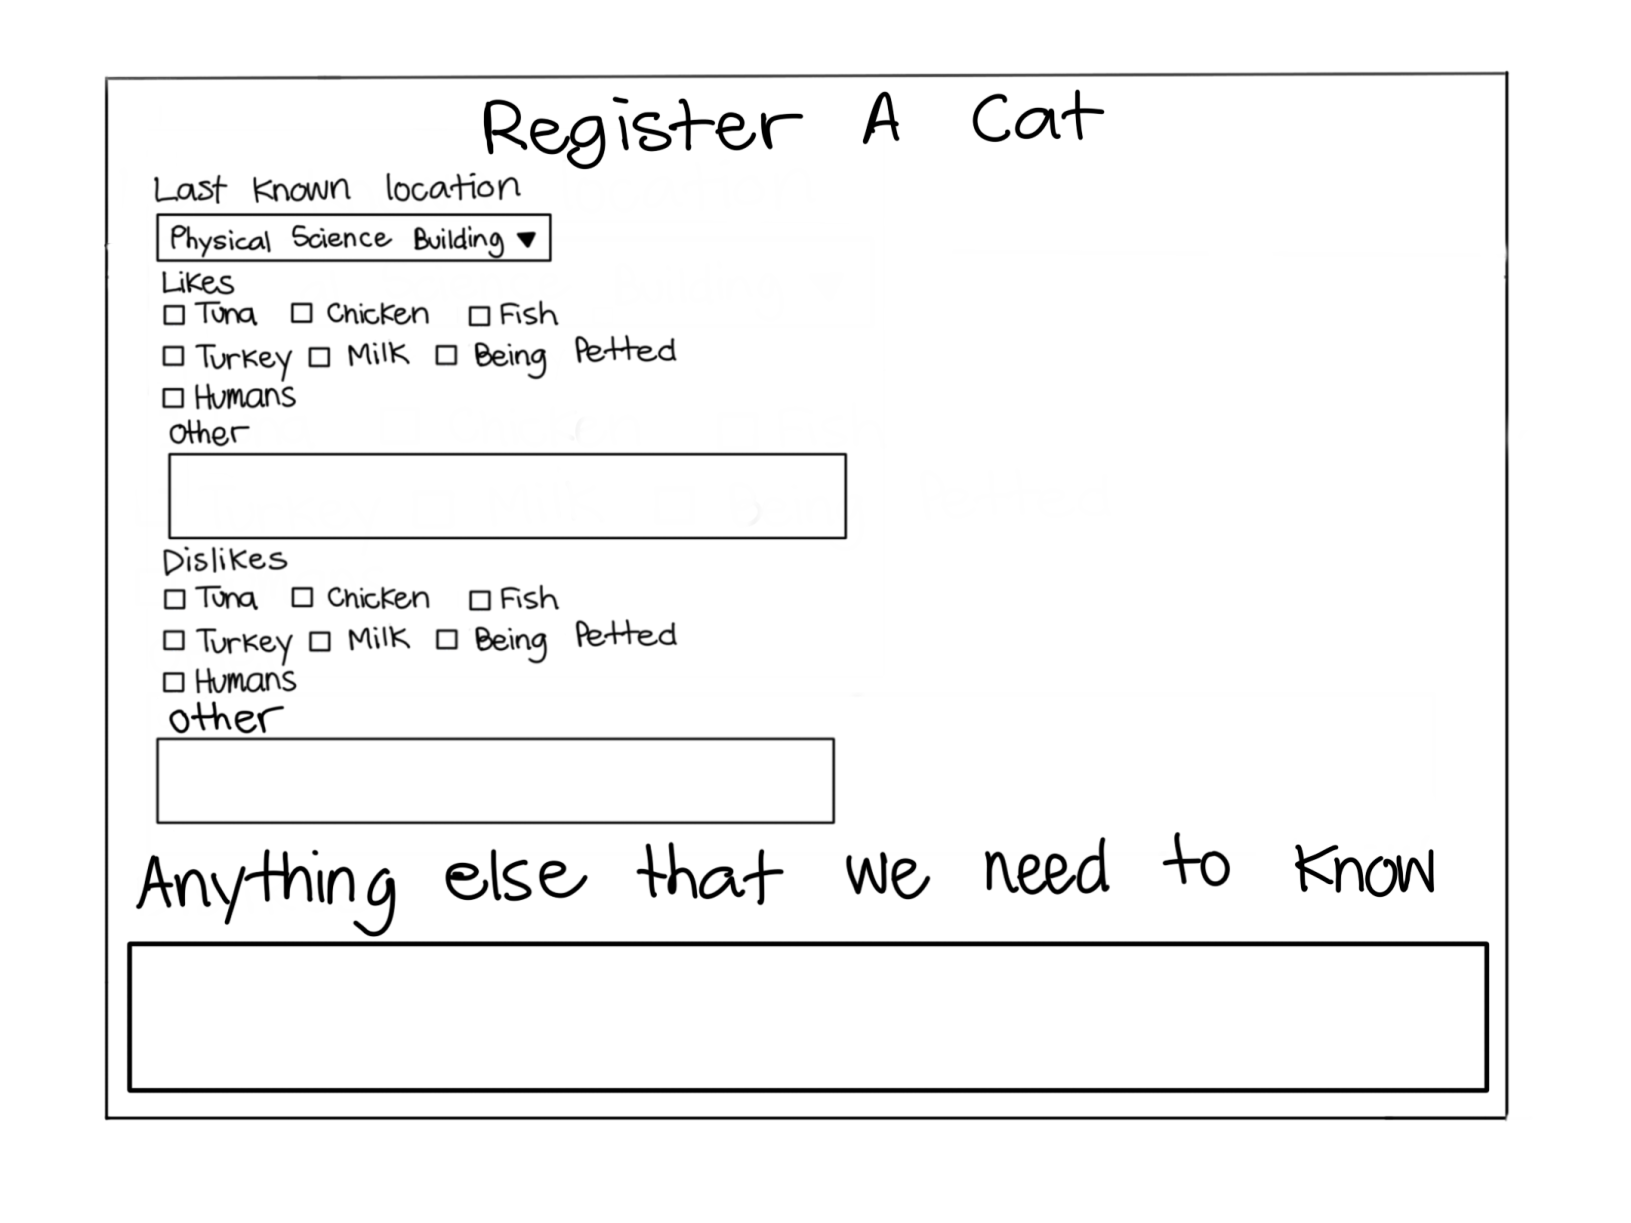 Register A Cat
Last Known location
Physical Science Building
Likes
Tuna Chicken Fish
Turkey Milk Being Petted
Humans
other
Dislikes
Tuna Chicken Fish
Turkey Milk Being Petted
Humans
other
Anything else that we need to know